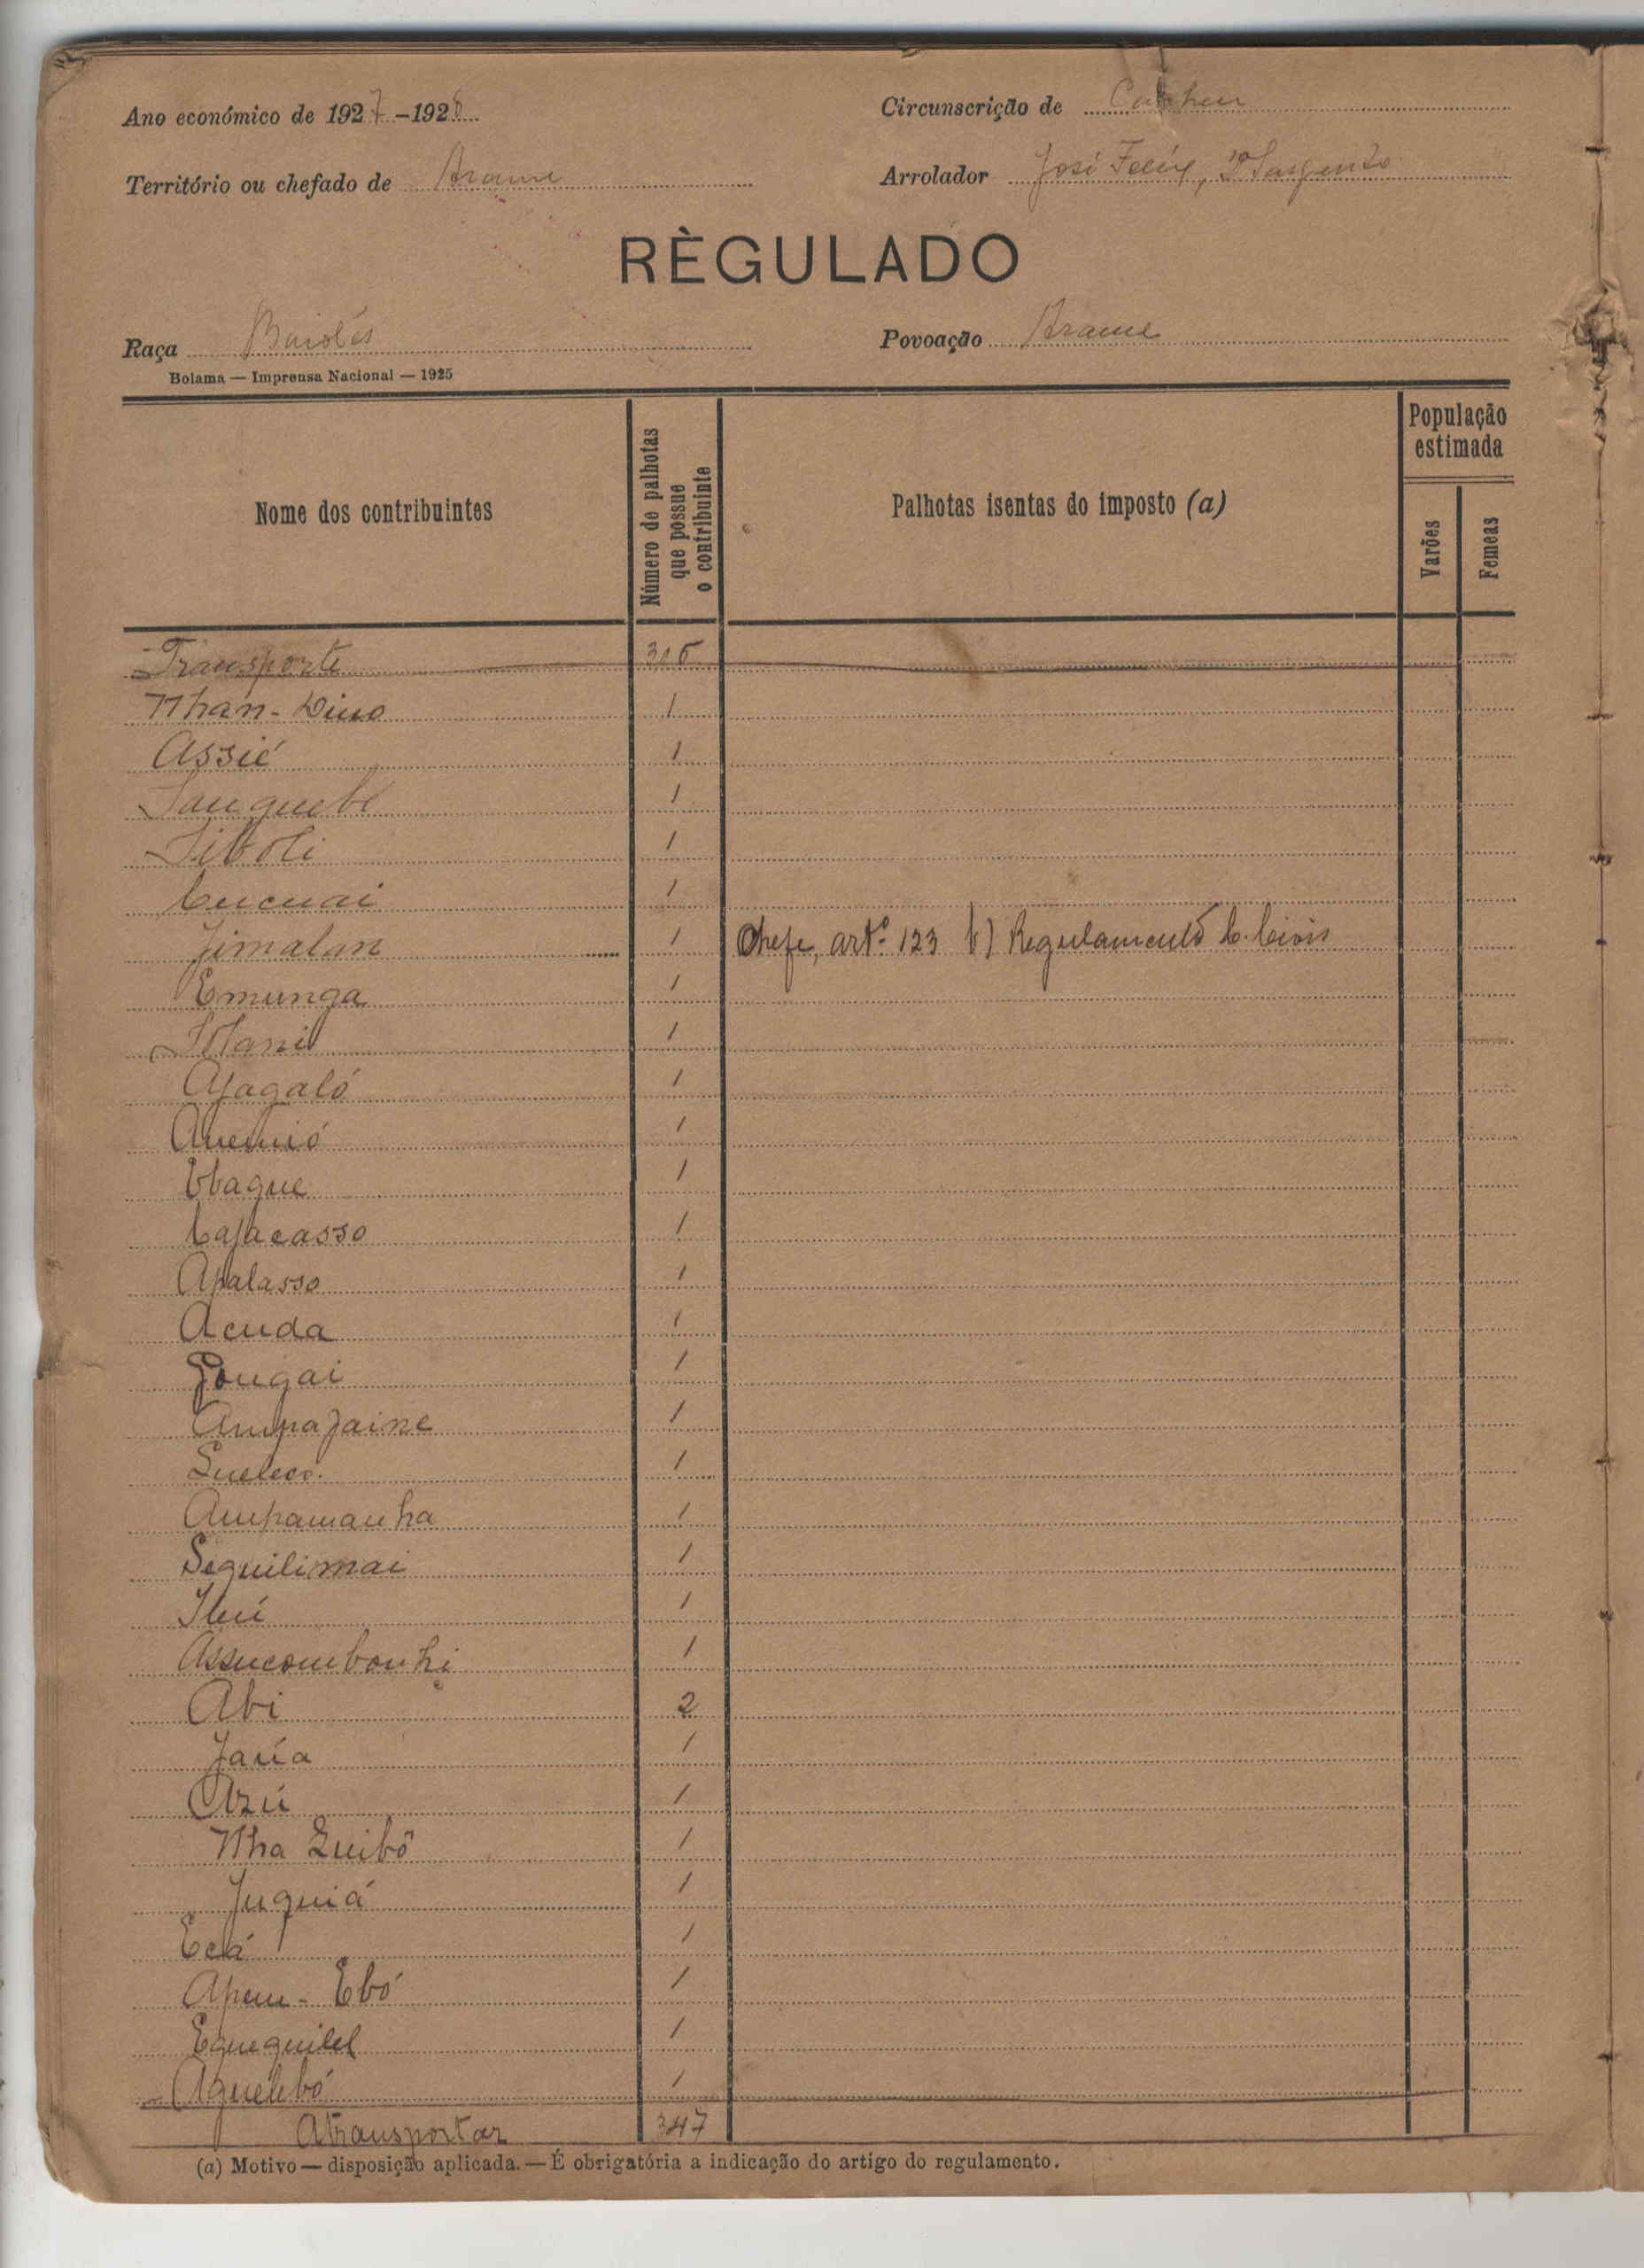 Ano económico de 1927-1928
Circunscrição de Cacheu
Território ou chefado de Arame
Arrolador José Felix, 2º Sargento
RÈGULADO
Raça Baiotes
Povoação Arame
Bolama — Imprensa Nacional — 1925
Nome dos contribuintes
Número de palhotas que possue o contribuinte
Palhotas isentas do imposto (a)
População estimada
Varões
Femeas
Transporte 316
Nhan-Dino 1
Assié 1
Sanguebl 1
Siboli 1
Cucuai 1
Jimalan 1 Chefe, artº 123 b) Regulamento C. Civis
Emunga 1
1
Ajagaló 1
Anemió 1
Ebague 1
Cajacasso 1
Apalasso 1
Acuda 1
Gougai 1
Ampajaine 1
Sueleco. 1
Ampamanha 1
Seguilimai 1
Ileú 1
Assucombonhi 1
Abi 2
Jaúa 1
Azú 1
Nha Quibô 1
Juquiá 1
Ecá 1
Apem-Ebó 1
Equequilel 1
Aquelebó 1
A transportar 347
(a) Motivo — disposição aplicada. — É obrigatória a indicação do artigo do regulamento.